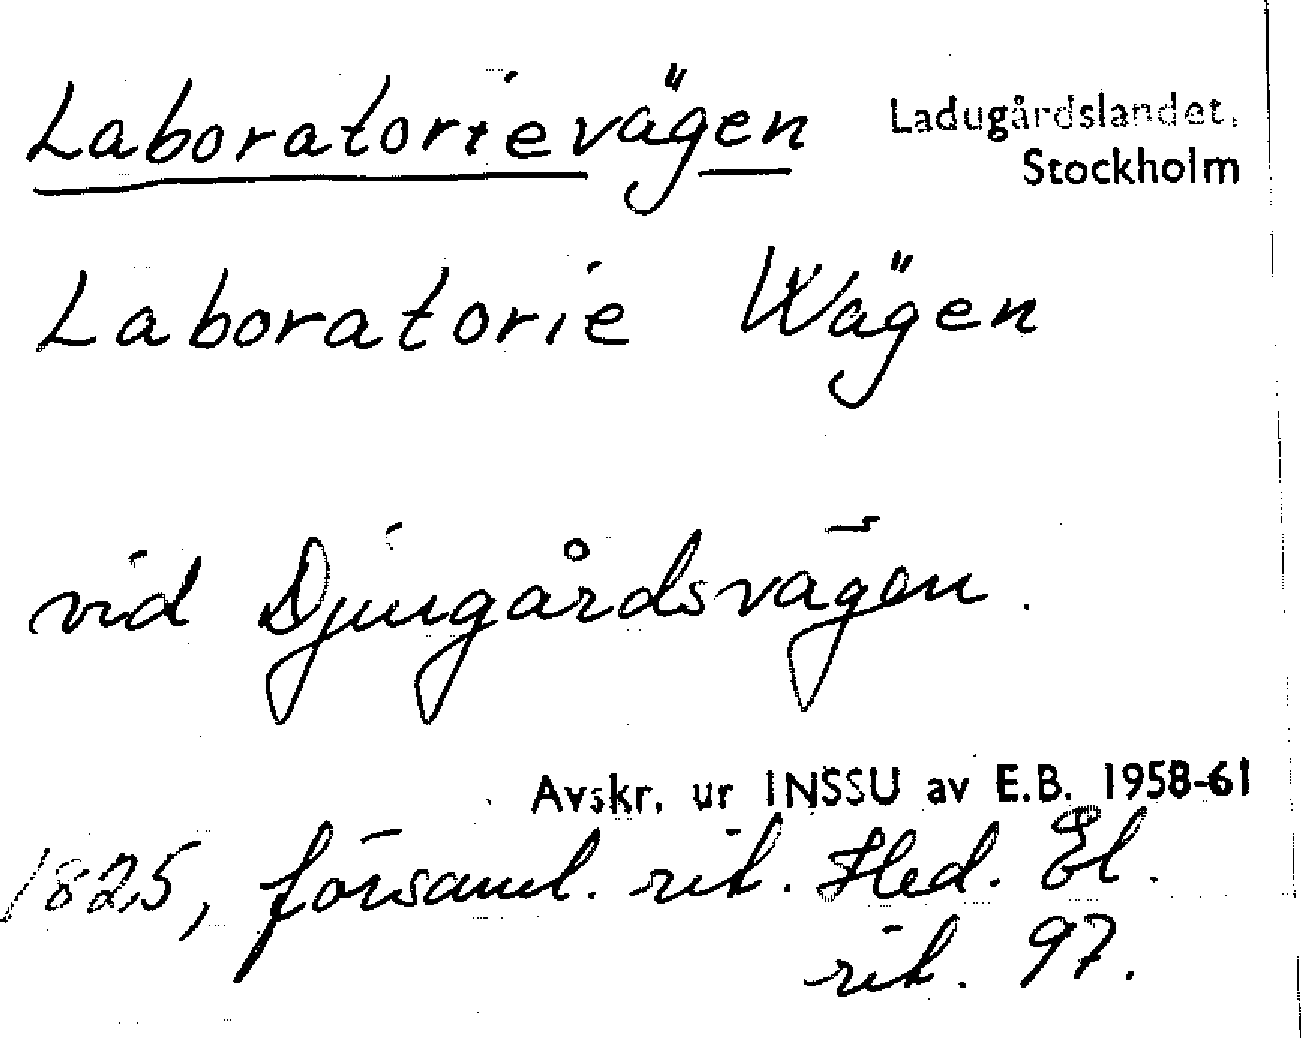 Laboratorievägen
Ladugårdslandet,
Stockholm
Laboratorie Wägen
vid Djurgårdsvägen.
Avskr. ur INSSU av E.B. 1958-61
1825, församl. rit. Hed. El.
rit. 97.